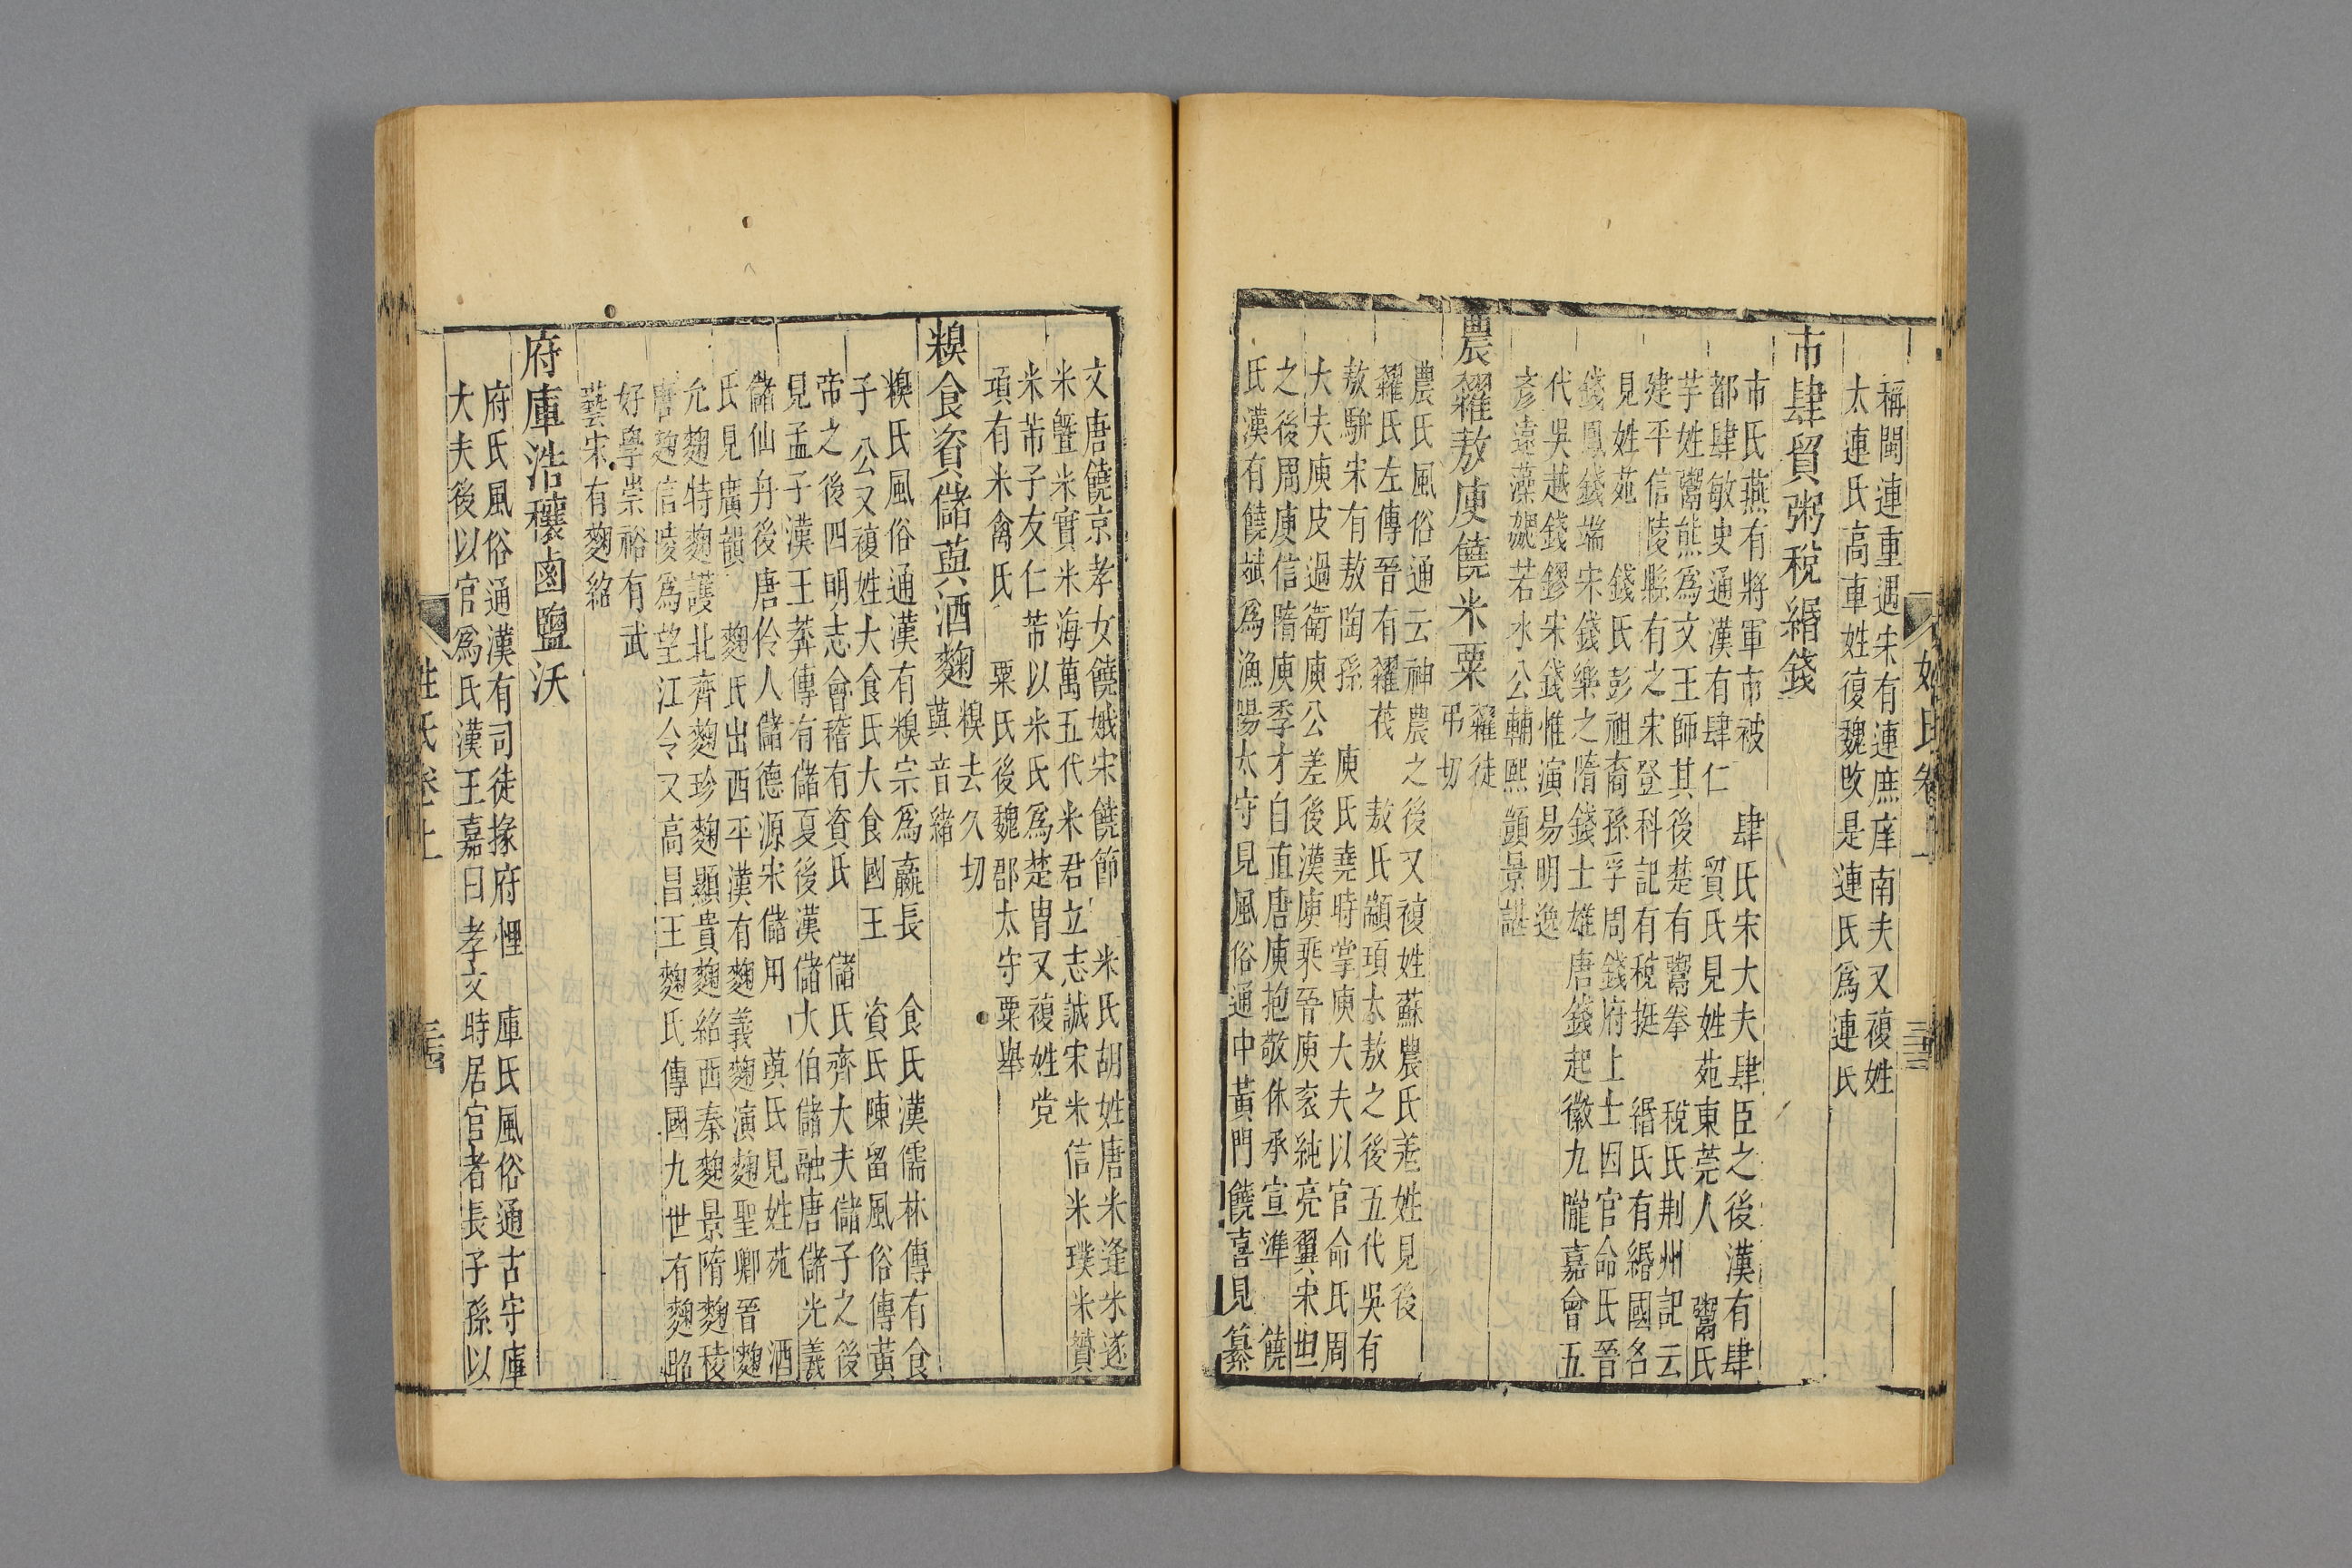 稱閩連重遇宋有連庶庠南夫又複姓
太連氏高車姓復魏改是連氏為連氏
市肆貿粥稅緡錢
市氏燕有將軍市被 肆氏宋大夫肆臣之後漢有肆
都肆敏史通漢有肆仁 貿氏見姓苑東莞人 鬻氏
芋姓鬻熊為文王師其後楚有鬻拳 稅氏荆州記云
建平信陵縣有之宋登科記有稅挺 緡氏有緡國名
見姓苑 錢氏彭祖裔孫孚周錢府上士因官命氏晉
錢鳳錢端宋錢樂之隋錢士雄唐錢起徽九隴嘉會五
代吳越錢鏐宋錢惟演易明逸
彥遠藻勰若水公輔熙顗景諶
農糴敖庾饒米粟 糴徒
弔切
農氏風俗通云神農之後又複姓蘇農氏羌姓見後
糴氏左傳晉有糴茷 敖氏顓頊太敖之後五代吳有
敖駢宋有敖陶孫 庾氏堯時掌庾大夫以官命氏周
大夫庾皮過衛庾公差後漢庾乘晉庾衮純亮翼宋世
之後周庾信隋庾季才自直唐庾抱敬休承宣準 饒
氏漢有饒斌為漁陽太守見風俗通中黃門饒喜見纂
姓氏卷上 三十三
文唐饒京孝女饒娥宋饒節 米氏胡姓唐米逢米遂
米暨米實米海萬五代米君立志誠宋米信米璞米贊
米芾子友仁芾以米氏為楚胄又複姓党
項有米禽氏 粟氏後魏郡太守粟舉
糗食資儲䔡酒麴 糗去久切
䔡音緒
糗氏風俗通漢有糗宗為嬴長 食氏漢儒林傳有食
子公又複姓大食氏大食國王 資氏陳留風俗傳黃
帝之後四明志會稽有資氏 儲氏齊大夫儲子之後
見孟子漢王莽傳有儲夏後漢儲大伯儲融唐儲光羲
儲仙舟後唐伶人儲德源宋儲用 䔡氏見姓苑 酒
氏見廣韻 麴氏出西平漢有麴義麴演麴聖卿晉麴
允麴特麴護北齊麴珍麴顯貴麴紹西秦麴景隋麴稜
唐麴信陵為望江令又高昌王麴氏傳國九世有麴昭
好學崇裕有武
藝宋有麴紹
府庫浩穰鹵鹽沃
府氏風俗通漢有司徒掾府悝 庫氏風俗通古守庫
大夫後以官為氏漢王嘉曰孝文時居官者長子孫以
姓氏卷上 三十四